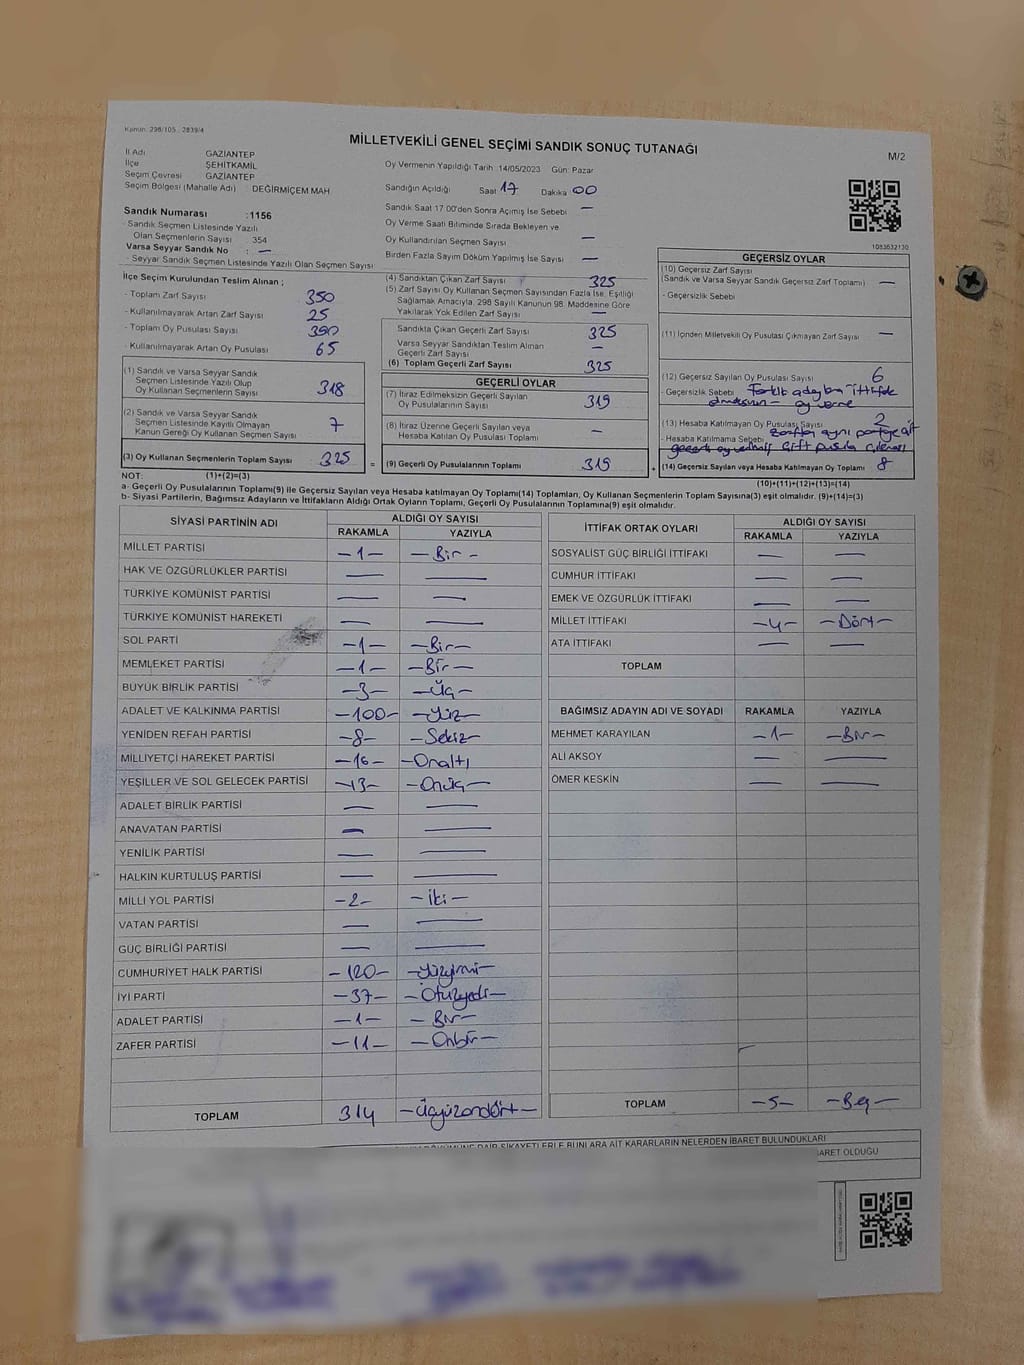 Kanun: 298/105, 2839/4
MİLLETVEKİLİ GENEL SEÇİMİ SANDIK SONUÇ TUTANAĞI
M/2
İl Adı GAZİANTEP
İlçe ŞEHİTKAMİL
Seçim Çevresi GAZİANTEP
Seçim Bölgesi (Mahalle Adı) : DEĞİRMİÇEM MAH
Sandık Numarası :1156
- Sandık Seçmen Listesinde Yazılı
Olan Seçmenlerin Sayısı 354
Varsa Seyyar Sandık No : —
- Seyyar Sandık Seçmen Listesinde Yazılı Olan Seçmen Sayısı
Oy Vermenin Yapıldığı Tarih :14/05/2023 Gün: Pazar
Sandığın Açıldığı Saat 17 Dakika 00
Sandık Saat 17:00'den Sonra Açılmış İse Sebebi —
Oy Verme Saati Bitiminde Sırada Bekleyen ve
Oy Kullandırılan Seçmen Sayısı —
Birden Fazla Sayım Döküm Yapılmış İse Sayısı —
1083632130
İlçe Seçim Kurulundan Teslim Alınan ;
- Toplam Zarf Sayısı 350
- Kullanılmayarak Artan Zarf Sayısı 25
- Toplam Oy Pusulası Sayısı 390
- Kullanılmayarak Artan Oy Pusulası 65
(1) Sandık ve Varsa Seyyar Sandık
Seçmen Listesinde Yazılı Olup
Oy Kullanan Seçmenlerin Sayısı 318
(2) Sandık ve Varsa Seyyar Sandık
Seçmen Listesinde Kayıtlı Olmayan
Kanun Gereği Oy Kullanan Seçmen Sayısı 7
(3) Oy Kullanan Seçmenlerin Toplam Sayısı 325
(4) Sandıktan Çıkan Zarf Sayısı 325
(5) Zarf Sayısı Oy Kullanan Seçmen Sayısından Fazla İse, Eşitliği
Sağlamak Amacıyla, 298 Sayılı Kanunun 98. Maddesine Göre
Yakılarak Yok Edilen Zarf Sayısı —
Sandıkta Çıkan Geçerli Zarf Sayısı 325
Varsa Seyyar Sandıktan Teslim Alınan
Geçerli Zarf Sayısı —
(6) Toplam Geçerli Zarf Sayısı 325
GEÇERLİ OYLAR
(7) İtiraz Edilmeksizin Geçerli Sayılan
Oy Pusulalarının Sayısı 319
(8) İtiraz Üzerine Geçerli Sayılan veya
Hesaba Katılan Oy Pusulası Toplamı —
= (9) Geçerli Oy Pusulalarının Toplamı 319
GEÇERSİZ OYLAR
(10) Geçersiz Zarf Sayısı
(Sandık ve Varsa Seyyar Sandık Geçersiz Zarf Toplamı) —
- Geçersizlik Sebebi
(11) İçinden Milletvekili Oy Pusulası Çıkmayan Zarf Sayısı —
(12) Geçersiz Sayılan Oy Pusulası Sayısı 6
- Geçersizlik Sebebi Farklı adaylara ittifak
oy verme
(13) Hesaba Katılmayan Oy Pusulası Sayısı 2
- Hesaba Katılmama Sebebi aynı partiye ait
geçerli oy çift pusula
+ (14) Geçersiz Sayılan veya Hesaba Katılmayan Oy Toplamı 8
NOT: (1)+(2)=(3)
(10)+(11)+(12)+(13)=(14)
a- Geçerli Oy Pusulalarının Toplamı(9) ile Geçersiz Sayılan veya Hesaba katılmayan Oy Toplamı(14) Toplamları, Oy Kullanan Seçmenlerin Toplam Sayısına(3) eşit olmalıdır. (9)+(14)=(3)
b- Siyasi Partilerin, Bağımsız Adayların ve İttifakların Aldığı Ortak Oyların Toplamı, Geçerli Oy Pusulalarının Toplamına(9) eşit olmalıdır.
SİYASİ PARTİNİN ADI ALDIĞI OY SAYISI
RAKAMLA YAZIYLA
MİLLET PARTİSİ —1— —Bir—
HAK VE ÖZGÜRLÜKLER PARTİSİ — —
TÜRKİYE KOMÜNİST PARTİSİ — —
TÜRKİYE KOMÜNİST HAREKETİ — —
SOL PARTİ —1— —Bir—
MEMLEKET PARTİSİ —1— —Bir—
BÜYÜK BİRLİK PARTİSİ —3— —Üç—
ADALET VE KALKINMA PARTİSİ —100— —Yüz—
YENİDEN REFAH PARTİSİ —8— —Sekiz—
MİLLİYETÇİ HAREKET PARTİSİ —16— —Onaltı
YEŞİLLER VE SOL GELECEK PARTİSİ —13— —Onüç—
ADALET BİRLİK PARTİSİ — —
ANAVATAN PARTİSİ — —
YENİLİK PARTİSİ — —
HALKIN KURTULUŞ PARTİSİ — —
MİLLİ YOL PARTİSİ —2— —İki—
VATAN PARTİSİ — —
GÜÇ BİRLİĞİ PARTİSİ — —
CUMHURİYET HALK PARTİSİ —120— —Yüzyirmi—
İYİ PARTİ —37— —Otuzyedi—
ADALET PARTİSİ —1— —Bir—
ZAFER PARTİSİ —11— —Onbir—
TOPLAM 314 —Üçyüzondört—
İTTİFAK ORTAK OYLARI ALDIĞI OY SAYISI
RAKAMLA YAZIYLA
SOSYALİST GÜÇ BİRLİĞİ İTTİFAKI — —
CUMHUR İTTİFAKI — —
EMEK VE ÖZGÜRLÜK İTTİFAKI — —
MİLLET İTTİFAKI —4— —Dört—
ATA İTTİFAKI — —
TOPLAM
BAĞIMSIZ ADAYIN ADI VE SOYADI RAKAMLA YAZIYLA
MEHMET KARAYILAN —1— —Bir—
ALİ AKSOY — —
ÖMER KESKİN — —
TOPLAM —5— —Beş—
DÖKÜMÜNE DAİR ŞİKAYETLERLE BUNLARA AİT KARARLARIN NELERDEN İBARET BULUNDUKLARI
İBARET OLDUĞU